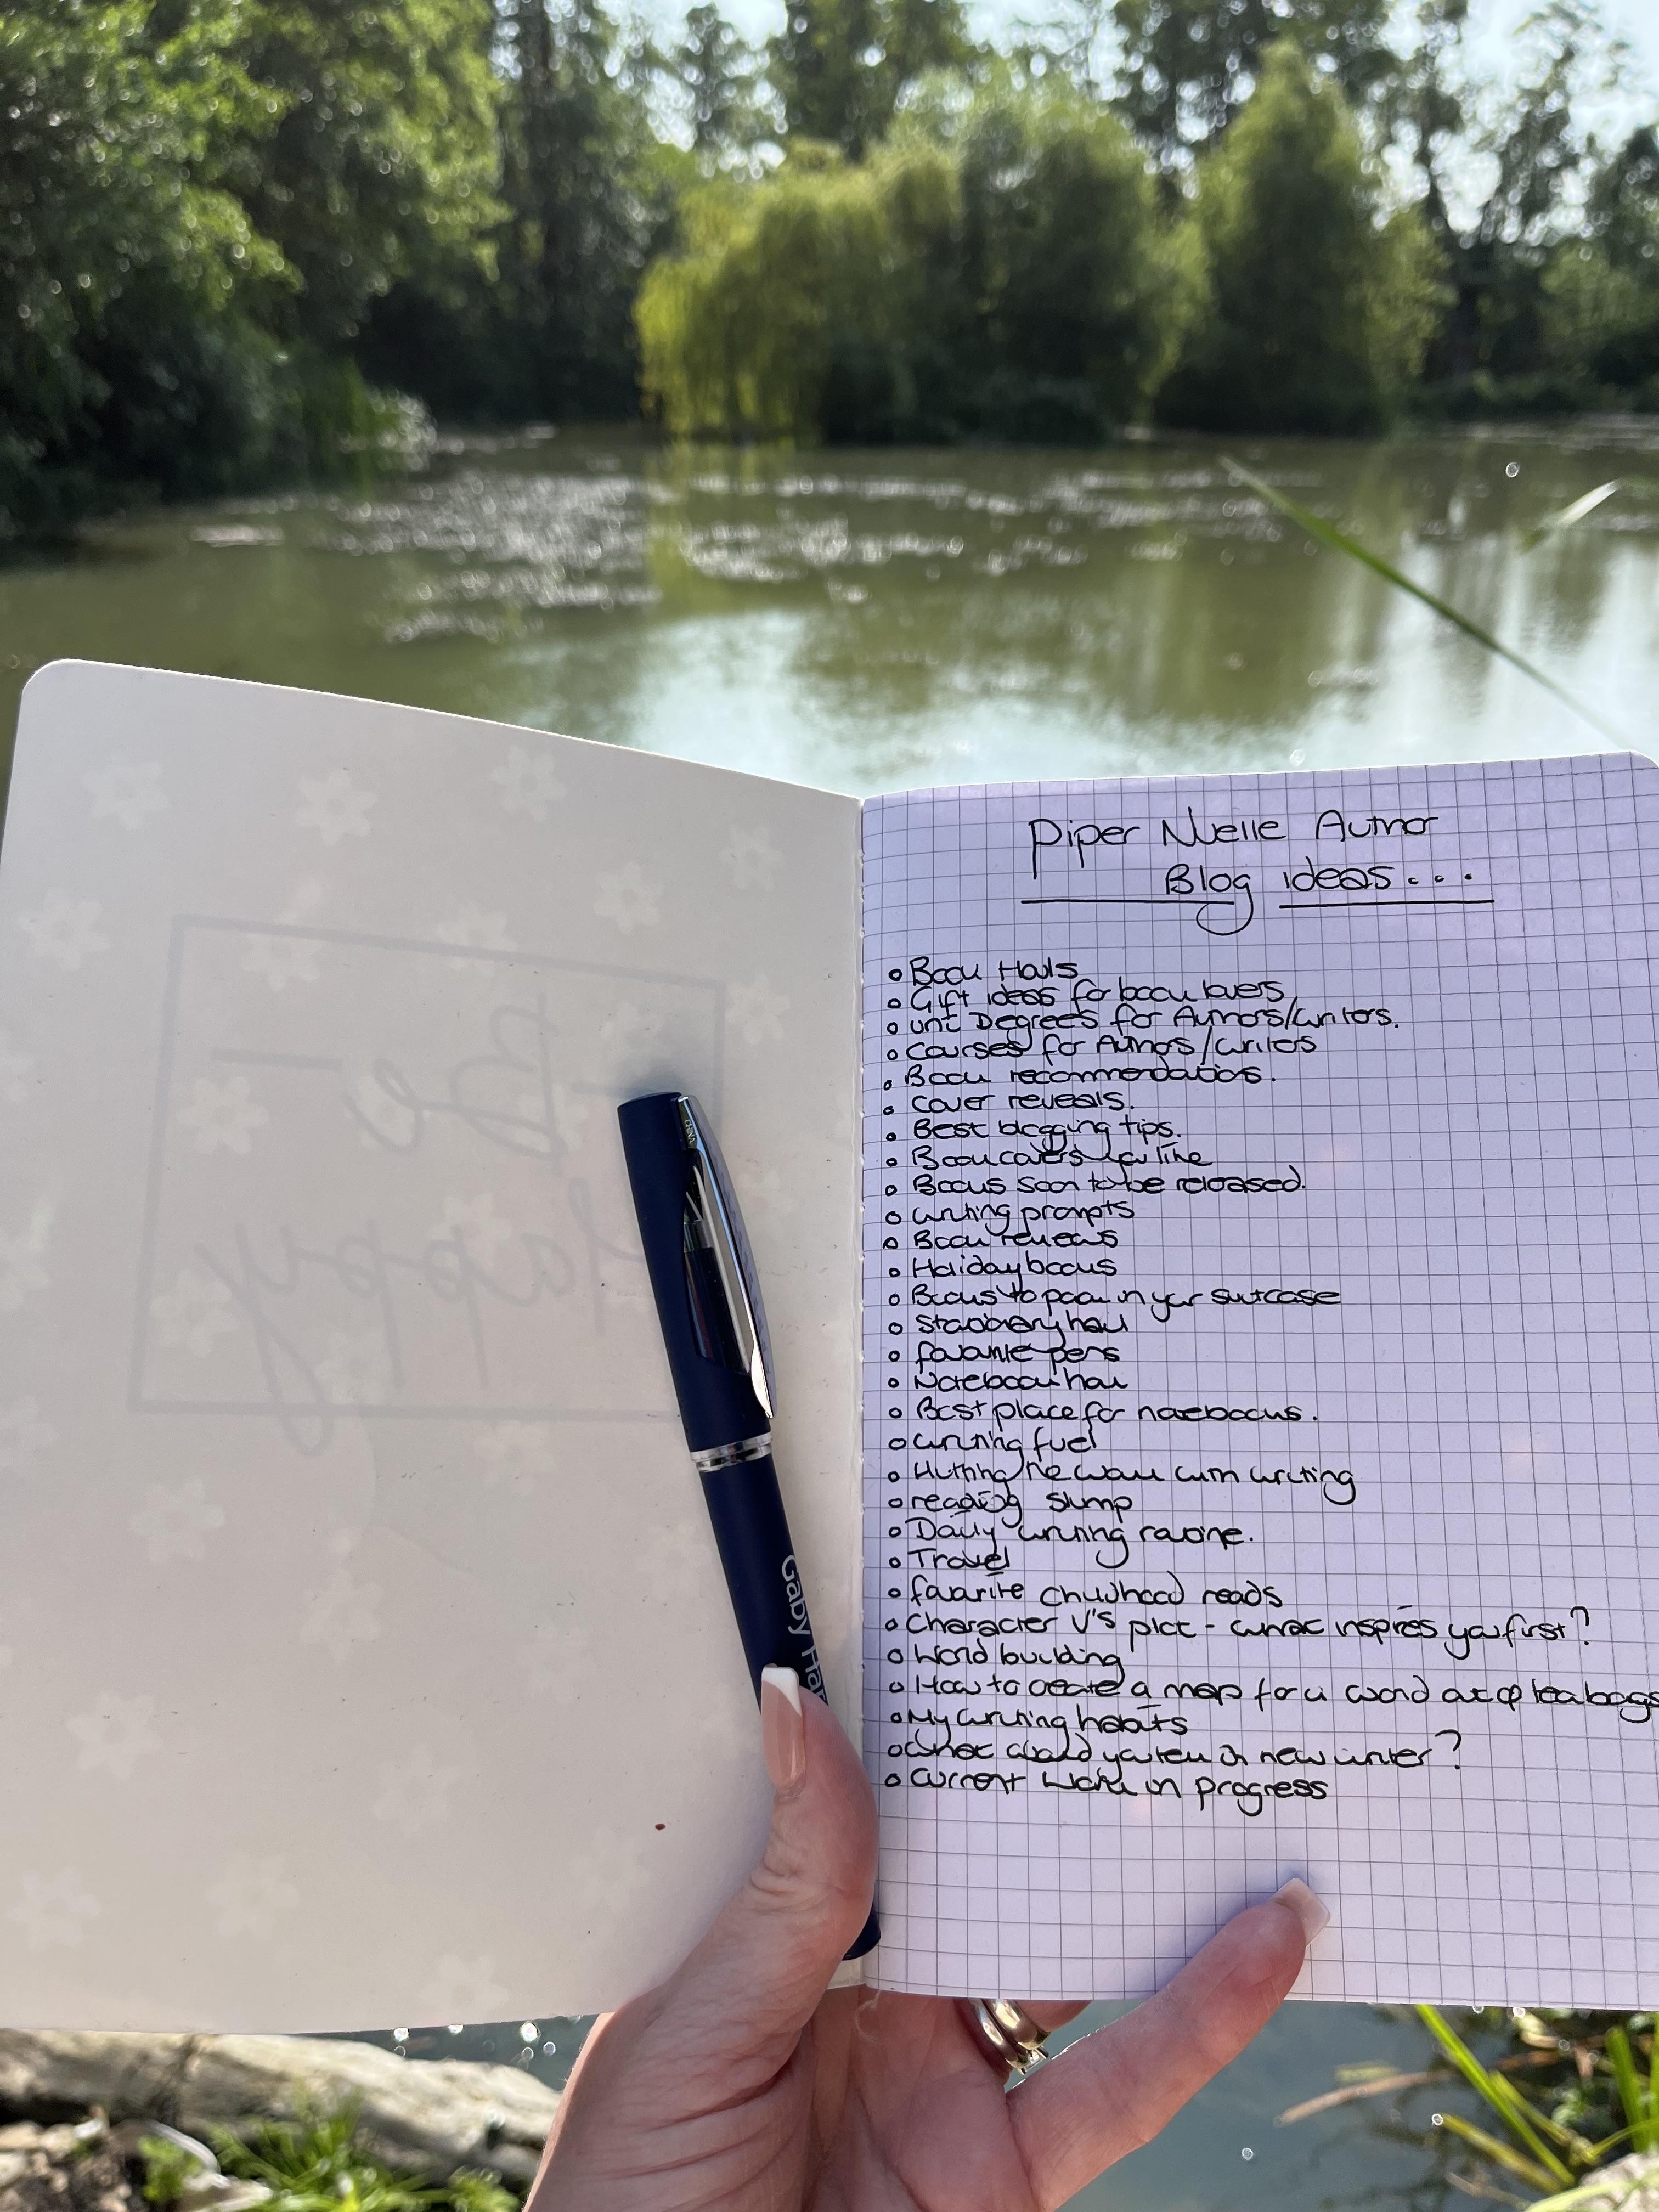 Be
Happy
CHINA
Gaby Ha
Piper Nuelle Author
Blog ideas...
• Book Hauls
• Gift ideas for book lovers
• Uni Degrees for Authors/writers.
• Courses for Authors/writers
• Book recommendations.
• Cover reveals.
• Best blogging tips.
• Book covers
• Books soon to be released.
• writing prompts
• Book reviews
• Holiday books
• Books to pack in your suitcase
• Stationery haul
• favourite pens
• Notebook haul
• Best place for notebooks.
• writing fuel
• Hitting the wall with writing
• reading slump
• Daily writing routine.
• Travel
• favourite childhood reads
• Character V's plot - what inspires you first?
• World building
• How to create a map for a world out of teabags
• My writing habits
• What would you tell a new writer?
• Current work in progress